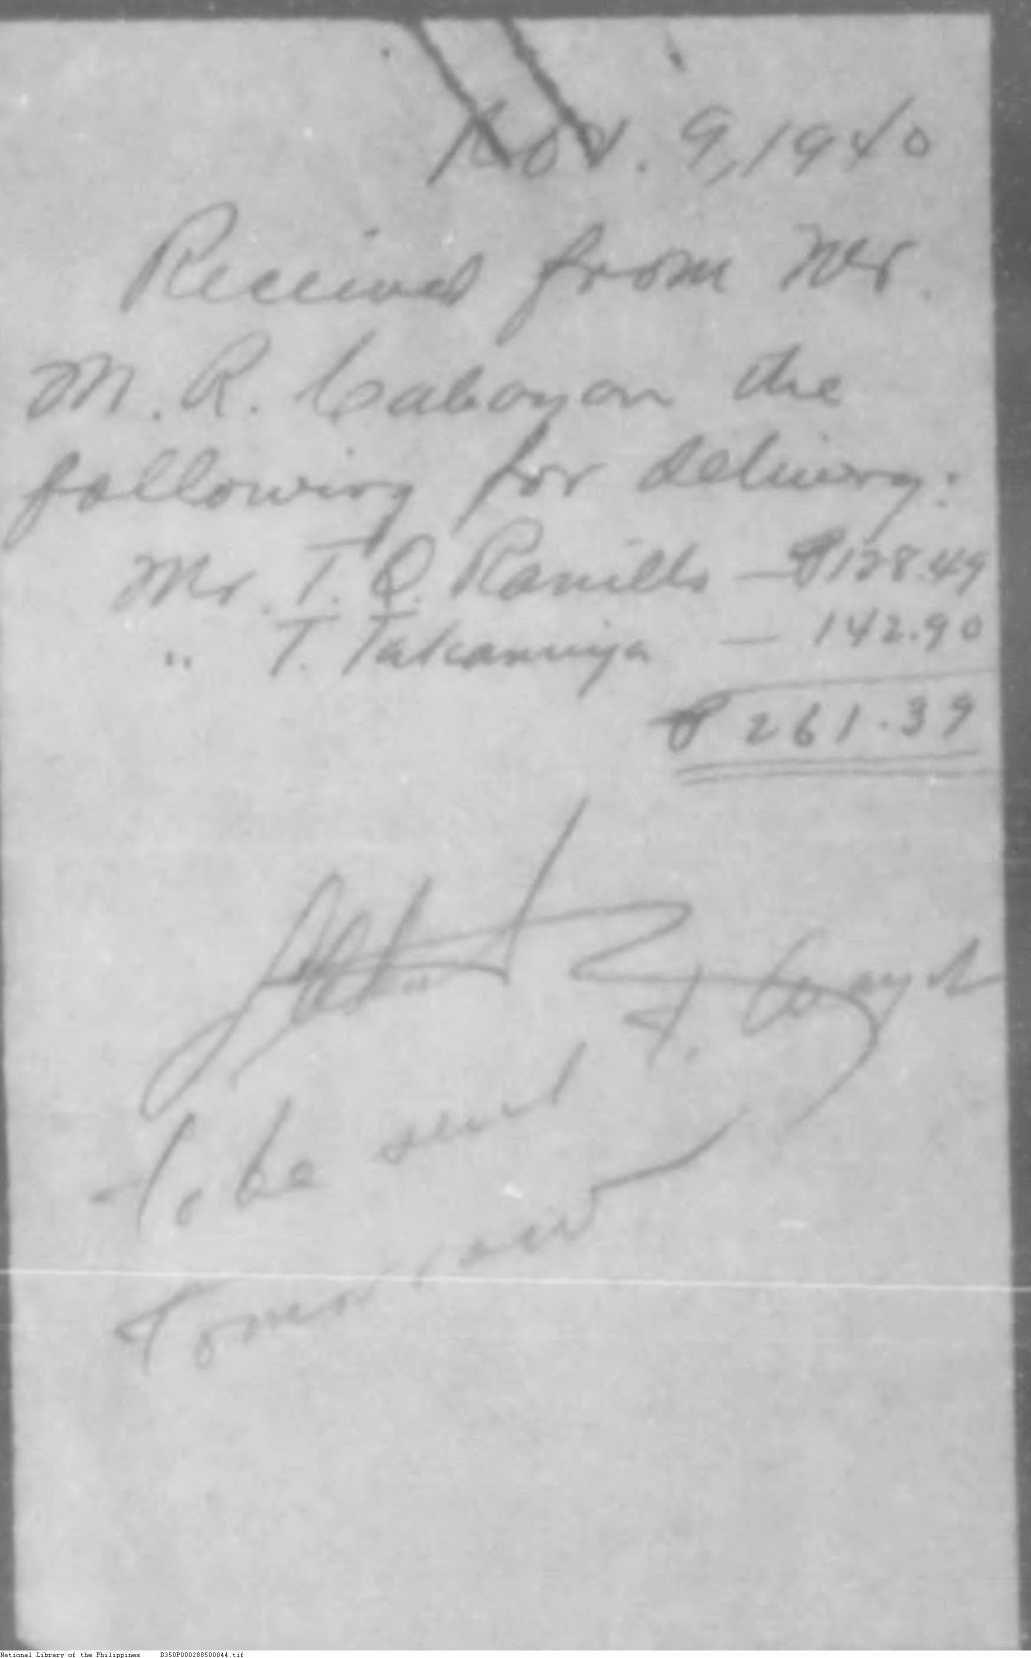 Nov. 9, 1940
Received from Mr.
M. R. Caboyon the
following for delivery:
Mr. T. O. — ₱128.49
" T. Takamiya — 142.90
₱ 261.39
To be sent
tomorrow
National Library of the Philippines D350P000288500044.tif